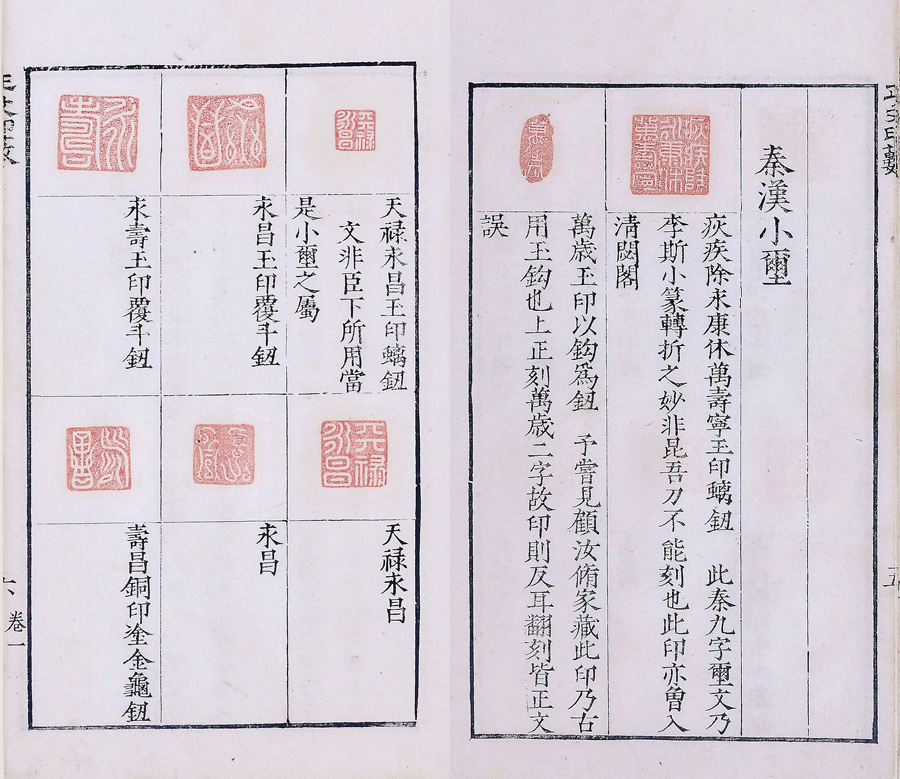 秦漢小璽
疢疾除永康休萬壽寧玉印螭鈕　此秦九字璽文乃
李斯小篆轉折之妙非昆吾刀不能刻也此印亦曾入
清閟閣
萬歲玉印以鈎為鈕　予嘗見顧汝脩家藏此印乃古
用玉鈎也上正刻萬歲二字故印則反耳翻刻皆正文
誤
五
天祿永昌玉印螭鈕
文非臣下所用當
是小璽之屬
永昌玉印覆斗鈕
永壽玉印覆斗鈕
天祿永昌
永昌
壽昌銅印塗金龜鈕
六
卷一